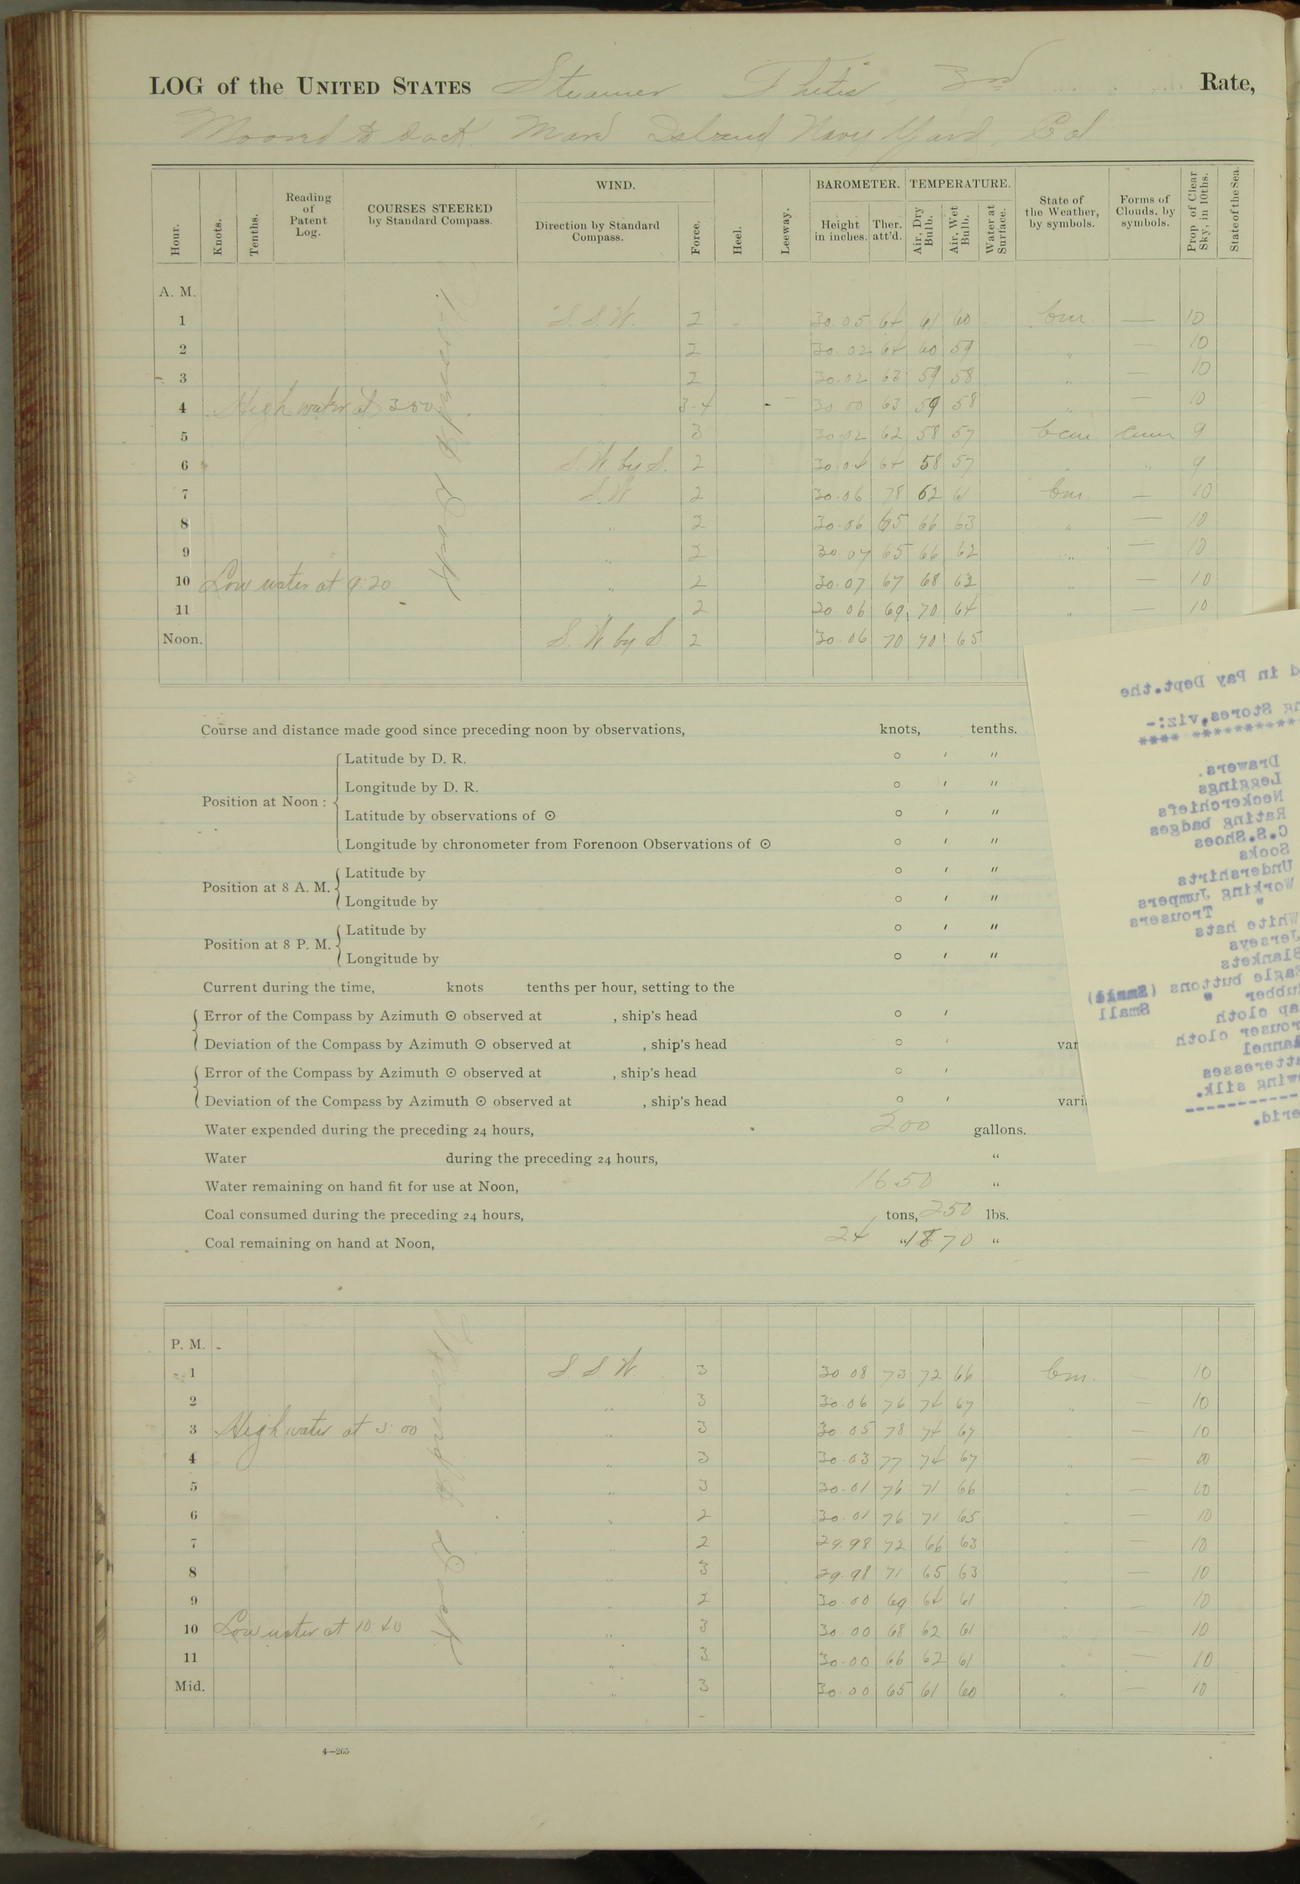 LOG of the UNITED STATES Steamer Thetis, 3rd Rate,
Moored to dock. Mare Island Navy Yard, Cal
Hour. Knots. Tenths. Reading of Patent Log. COURSES STEERED by Standard Compass. WIND. Direction by Standard Compass. Force. Heel. Leeway. BAROMETER. Height in inches. Ther. att'd. TEMPERATURE. Air, Dry Bulb. Air, Wet Bulb. Water at Surface. State of the Weather, by symbols. Forms of Clouds, by symbols. Prop. of Clear Sky, in 10ths. State of the Sea.
A. M.
1 S. S. W. 2 30.05 64 61 60 bm — 10
2 2 30.02 64 60 59 " — 10
3 2 30.02 63 59 58 " — 10
4 High water at 3:00 3-4 30.00 63 59 58 " — 10
5 3 30.02 62 58 57 bcm cum 9
6 S. W by S. 2 30.04 64 58 57 " " 9
7 S. W 2 30.06 78 62 61 bm — 10
8 " 2 30.06 65 66 63 " — 10
9 " 2 30.07 65 66 62 " — 10
10 Low water at 9:20 " 2 30.07 67 68 62 " — 10
11 2 30.06 69 70 64 " — 10
Noon. S. W by S 2 30.06 70 70 65
Course and distance made good since preceding noon by observations, knots, tenths.
Position at Noon: Latitude by D. R. ° ′ ″
Longitude by D. R. ° ′ ″
Latitude by observations of ☉ ° ′ ″
Longitude by chronometer from Forenoon Observations of ☉ ° ′ ″
Position at 8 A. M. Latitude by ° ′ ″
Longitude by ° ′ ″
Position at 8 P. M. Latitude by ° ′ ″
Longitude by ° ′ ″
Current during the time, knots tenths per hour, setting to the
Error of the Compass by Azimuth ☉ observed at , ship's head ° ′
Deviation of the Compass by Azimuth ☉ observed at , ship's head ° ′ var
Error of the Compass by Azimuth ☉ observed at , ship's head ° ′
Deviation of the Compass by Azimuth ☉ observed at , ship's head ° ′ vari
Water expended during the preceding 24 hours, 200 gallons.
Water during the preceding 24 hours, "
Water remaining on hand fit for use at Noon, 1650 "
Coal consumed during the preceding 24 hours, tons, 250 lbs.
Coal remaining on hand at Noon, 24 " 1870 "
d in Pay Dept.the
ng Stores,viz:-
Drawers.
Leggings
Neckerchiefs
Rating badges
C.S.Shoes
Socks
Undershirts
Working Jumpers
" Trousers
White hats
Jerseys
Blankets
Eagle buttons (Small)
ubber " Small
ap cloth
rouser cloth
lannel
ttresses
wing silk.
P. M.
1 S. S. W 3 30.08 73 72 66 bm. — 10
2 " 3 30.06 76 74 67 " — 10
3 High water at 3:00 " 3 30.05 78 74 67 " — 10
4 " 3 30.03 77 74 67 " — 10
5 " 3 30.01 76 71 66 " — 10
6 " 2 30.01 76 71 65 " — 10
7 " 2 29.98 72 66 63 " — 10
8 " 3 29.98 71 65 63 " — 10
9 " 2 30.00 69 64 61 " — 10
10 Low water at 10:40 " 3 30.00 68 62 61 " — 10
11 " 3 30.00 66 62 61 " — 10
Mid. " 3 30.00 65 61 60 " — 10
4—265